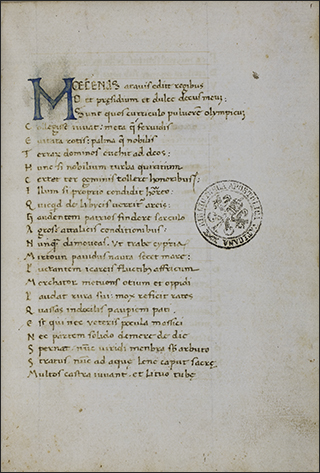 MOECENAS atavis edite regibus
O et presidium et dulce decus meū:
Sunt quos curriculo pulverē olympicū
Collegisse iuvat: meta q; fervidis
Evitata rotis: palma q; nobilis
Terrarū dominos evehit ad deos:
Hunc si nobilium turba quiritium
Certet ter geminis tollere honoribus:
Illum si proprio condidit horreo
Quicqd de libycis verrit areis:
Gaudentem patrios findere sarculo
Agros attalicis conditionibus
Nunq̄ dimoveas. Ut trabe cypria
Mirtoum pavidus nauta secet mare:
Luctantem icareis fluctibus affricum
Merchator metuens otium et oppidi
Laudat rura sui: mox reficit rates
Quassas indocilis paupiem pati
Est qui nec veteris pocula massici
Nec partem solido demere de die
Spernat. nūc viridi membra sb arbuto
Stratus. nūc ad aque lene caput sacre
Multos castra iuvant. et lituo tube
BIBLIOTECA APOSTOLICA VATICANA